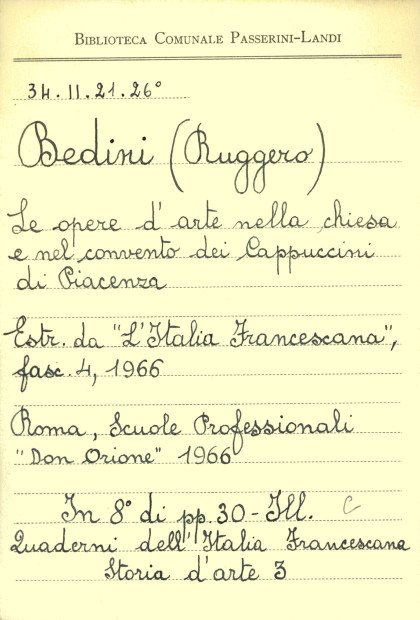 BIBLIOTECA COMUNALE PASSERINI-LANDI
34.II.21.26°
Bedini (Ruggero)
Le opere d'arte nella chiesa
e nel convento dei Cappuccini
di Piacenza
Estr. da "L'Italia Francescana",
fasc. 4, 1966
Roma, Scuole Professionali
"Don Orione" 1966
In 8° di pp. 30 - Ill. C
Quaderni dell'Italia Francescana
Storia d'arte 3